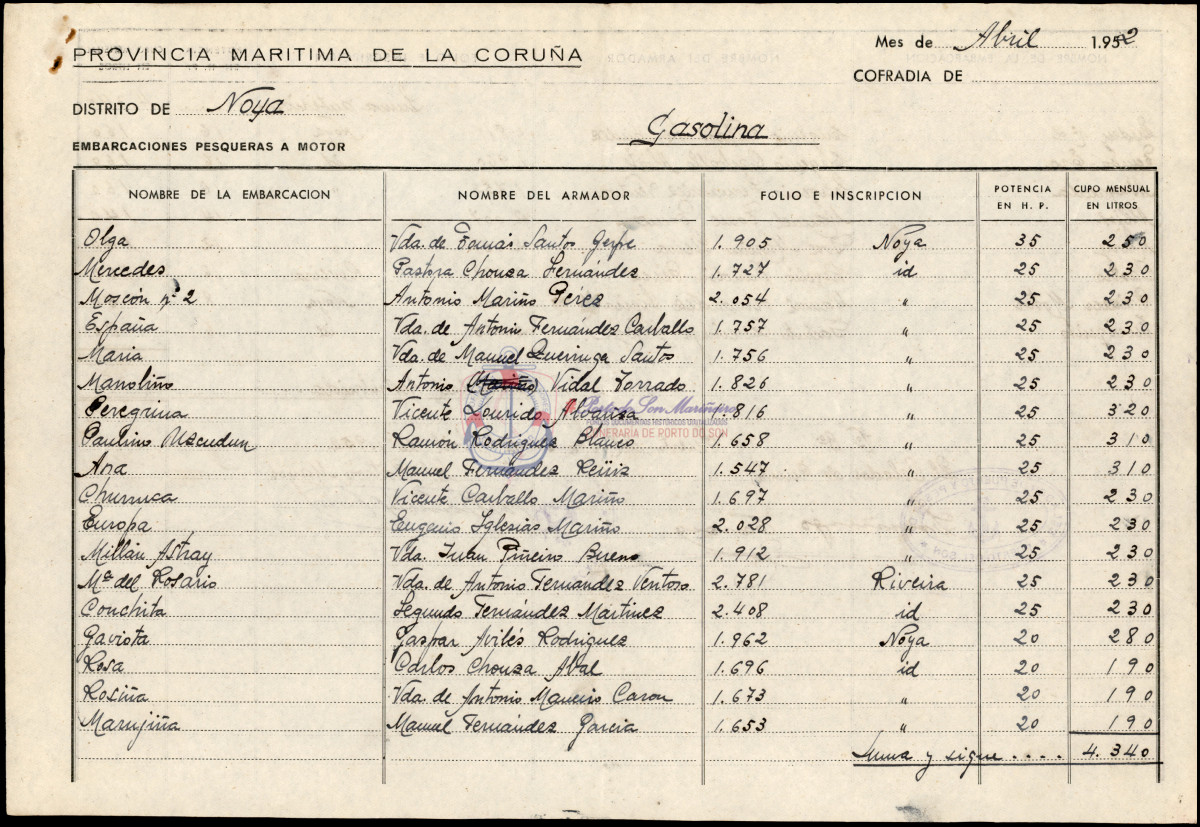 PROVINCIA MARITIMA DE LA CORUÑA
Mes de Abril 1.952
COFRADIA DE
DISTRITO DE Noya
Gasolina
EMBARCACIONES PESQUERAS A MOTOR
NOMBRE DE LA EMBARCACION NOMBRE DEL ARMADOR FOLIO E INSCRIPCION POTENCIA EN H. P. CUPO MENSUAL EN LITROS
Olga Vda. de Tomás Santos Gerpe 1.905 Noya 35 250
Mercedes Pastora Chouza Fernández 1.727 id 25 230
Moscón nº 2 Antonio Mariño Pérez 2.054 " 25 230
España Vda. de Antonio Fernández Carballo 1.757 " 25 230
Maria Vda. de Manuel Queiruga Santos 1.756 " 25 230
Manoliño Antonio (Mariño) Vidal Torrado 1.826 " 25 230
Peregrina Vicente Lourido 1.816 " 25 320
Paulino Uzcudun Ramón Rodríguez Blanco 1.658 " 25 310
Ana Manuel Fernández 1.547 " 25 310
Churruca Vicente Carballo Mariño 1.697 " 25 230
Europa Eugenio Iglesias Mariño 2.028 " 25 230
Millán Astray Vda. Juan Piñeiro Bueno 1.912 " 25 230
Mª del Rosario Vda. de Antonio Fernández Ventoso 2.781 Riveira 25 230
Conchita Segundo Fernández Martínez 2.408 id 25 230
Gaviota Gaspar Avilés Rodriguez 1.962 Noya 20 280
Rosa Carlos Chouza Abal 1.696 id 20 190
Rosiña Vda. de Antonio Maneiro Carou 1.673 " 20 190
Marujiña Manuel Fernández Garcia 1.653 " 20 190
Suma y sigue .... 4.340
Porto do Son Mariñeiro
FONDOS DOCUMENTAIS HISTÓRICOS DIXITALIZADOS
DE PORTO DO SON